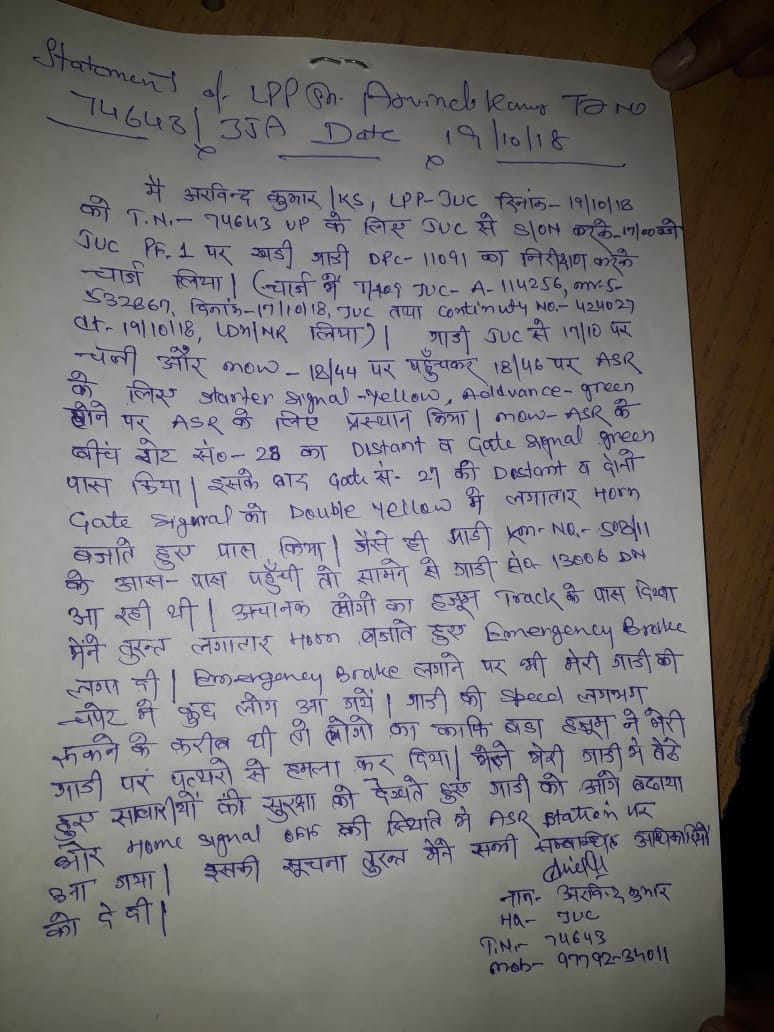 Statement of LPP Sh. Arvind Kumar T. NO
74643 / JJA Date 19/10/18
मै अरविन्द कुमार /KS, LPP-JUC दिनांक- 19/10/18
को T.N.- 74643 UP के लिए JUC से S/ON करके-17/00 बजे
JUC PF.1 पर खडी गाडी DPC-11091 का निरीक्षण करके
चार्ज लिया। (चार्ज में T/409 JUC- A-114256,
532867, दिनांक-17/10/18, JUC तथा Continuity NO.- 424027
dt.- 19/10/18, LDH/NR लिया)। गाडी JUC से 17/10 पर
चली और MOW- 18/44 पर पहुँचकर 18/46 पर ASR
के लिए starter signal-Yellow, Addvance-green
होने पर ASR के लिए प्रस्थान किया। MOW-ASR के
बीच गेट सं०- 28 का Distant व Gate signal green
पास किया। इसके बाद Gate सं- 27 की Distant व दोनो
Gate signal को Double Yellow में लगातार Horn
बजाते हुए पास किया। जैसे ही गाडी Km-NO.- 508/11
के आस-पास पहुँची तो सामने से गाडी सं० 13006 DN
आ रही थी। अचानक लोगो का हजूम Track के पास दिखा
मैंने तुरन्त लगातार Horn बजाते हुए Emergency Brake
लगा दी। Emergency Brake लगाने पर भी मेरी गाडी की
चपेट मे कुछ लोग आ गये। गाडी की speed लगभग
रूकने के करीब थी तो लोगो का काफि बडा हजूम ने मेरी
गाडी पर पत्थरो से हमला कर दिया। मैंने मेरी गाडी मे बैठे
हुए सवारीयों की सुरक्षा को देखते हुए गाडी को आगे बढाया
और Home signal OFF की स्थिति मे ASR station पर
आ गया। इसकी सूचना तुरन्त मैंने सभी सम्बन्धित अधिकारियों
को दे दी।
नाम- अरविन्द कुमार
HQ- JUC
T.N.- 74643
Mob- 97792-34011